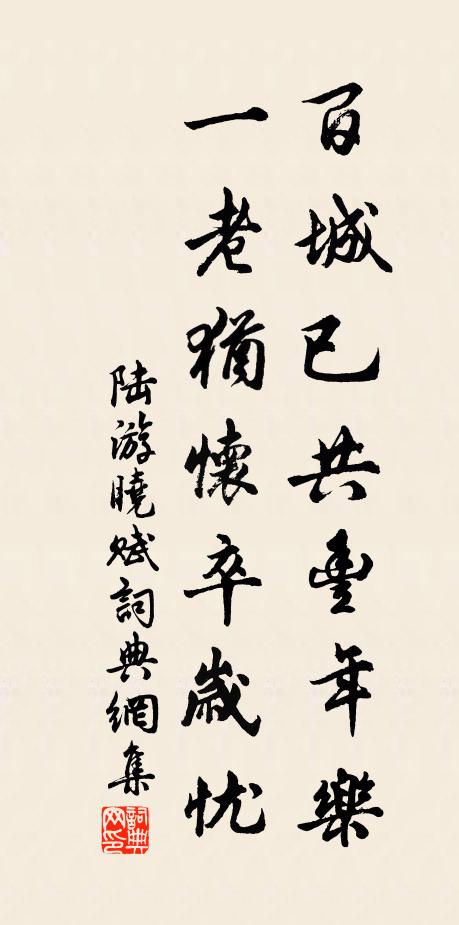 百城已共豐年樂
一老猶懷卒歲忧
陆游曉赋詞典網集
詞典网印